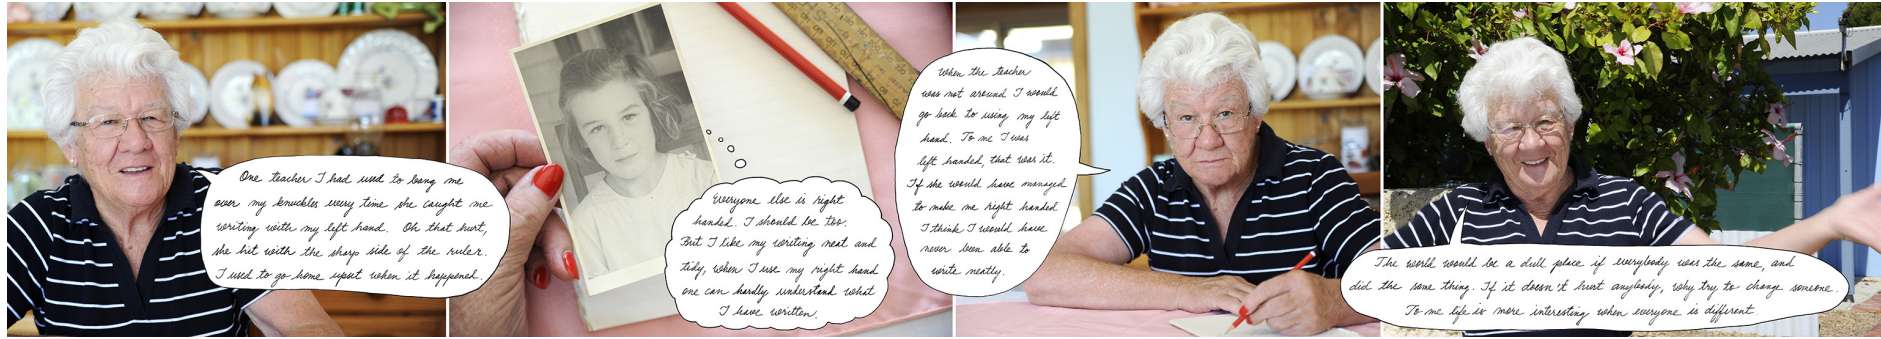 One teacher I had used to bang me
over my knuckles every time she caught me
writing with my left hand. Oh that hurt,
she hit with the sharp side of the ruler.
I used to go home upset when it happened.
Everyone else is right
handed. I should be too.
But I like my writing neat and
tidy, when I use my right hand
one can hardly understand what
I have written.
When the teacher
was not around I would
go back to using my left
hand. To me I was
left handed, that was it.
If she would have managed
to make me right handed
I think I would have
never been able to
write neatly.
The world would be a dull place if everybody was the same, and
did the same thing. If it doesn't hurt anybody, why try to change someone.
To me life is more interesting when everyone is different.